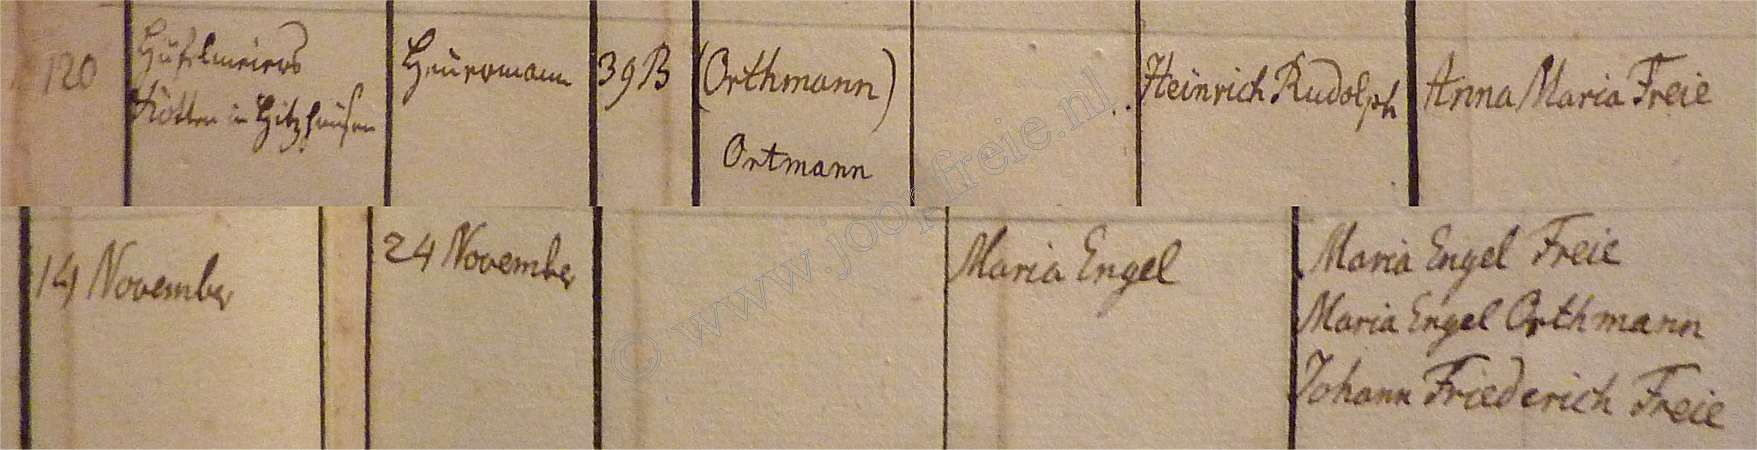 120
Hüfelmeiers
Kotten in Hitzhausen
Heuermann
39 B
(Orthmann)
Ortmann
Heinrich Rudolph
Anna Maria Freie
14 November
24 November
Maria Engel
Maria Engel Freie
Maria Engel Orthmann
Johann Friederich Freie
© www.joopfreie.nl